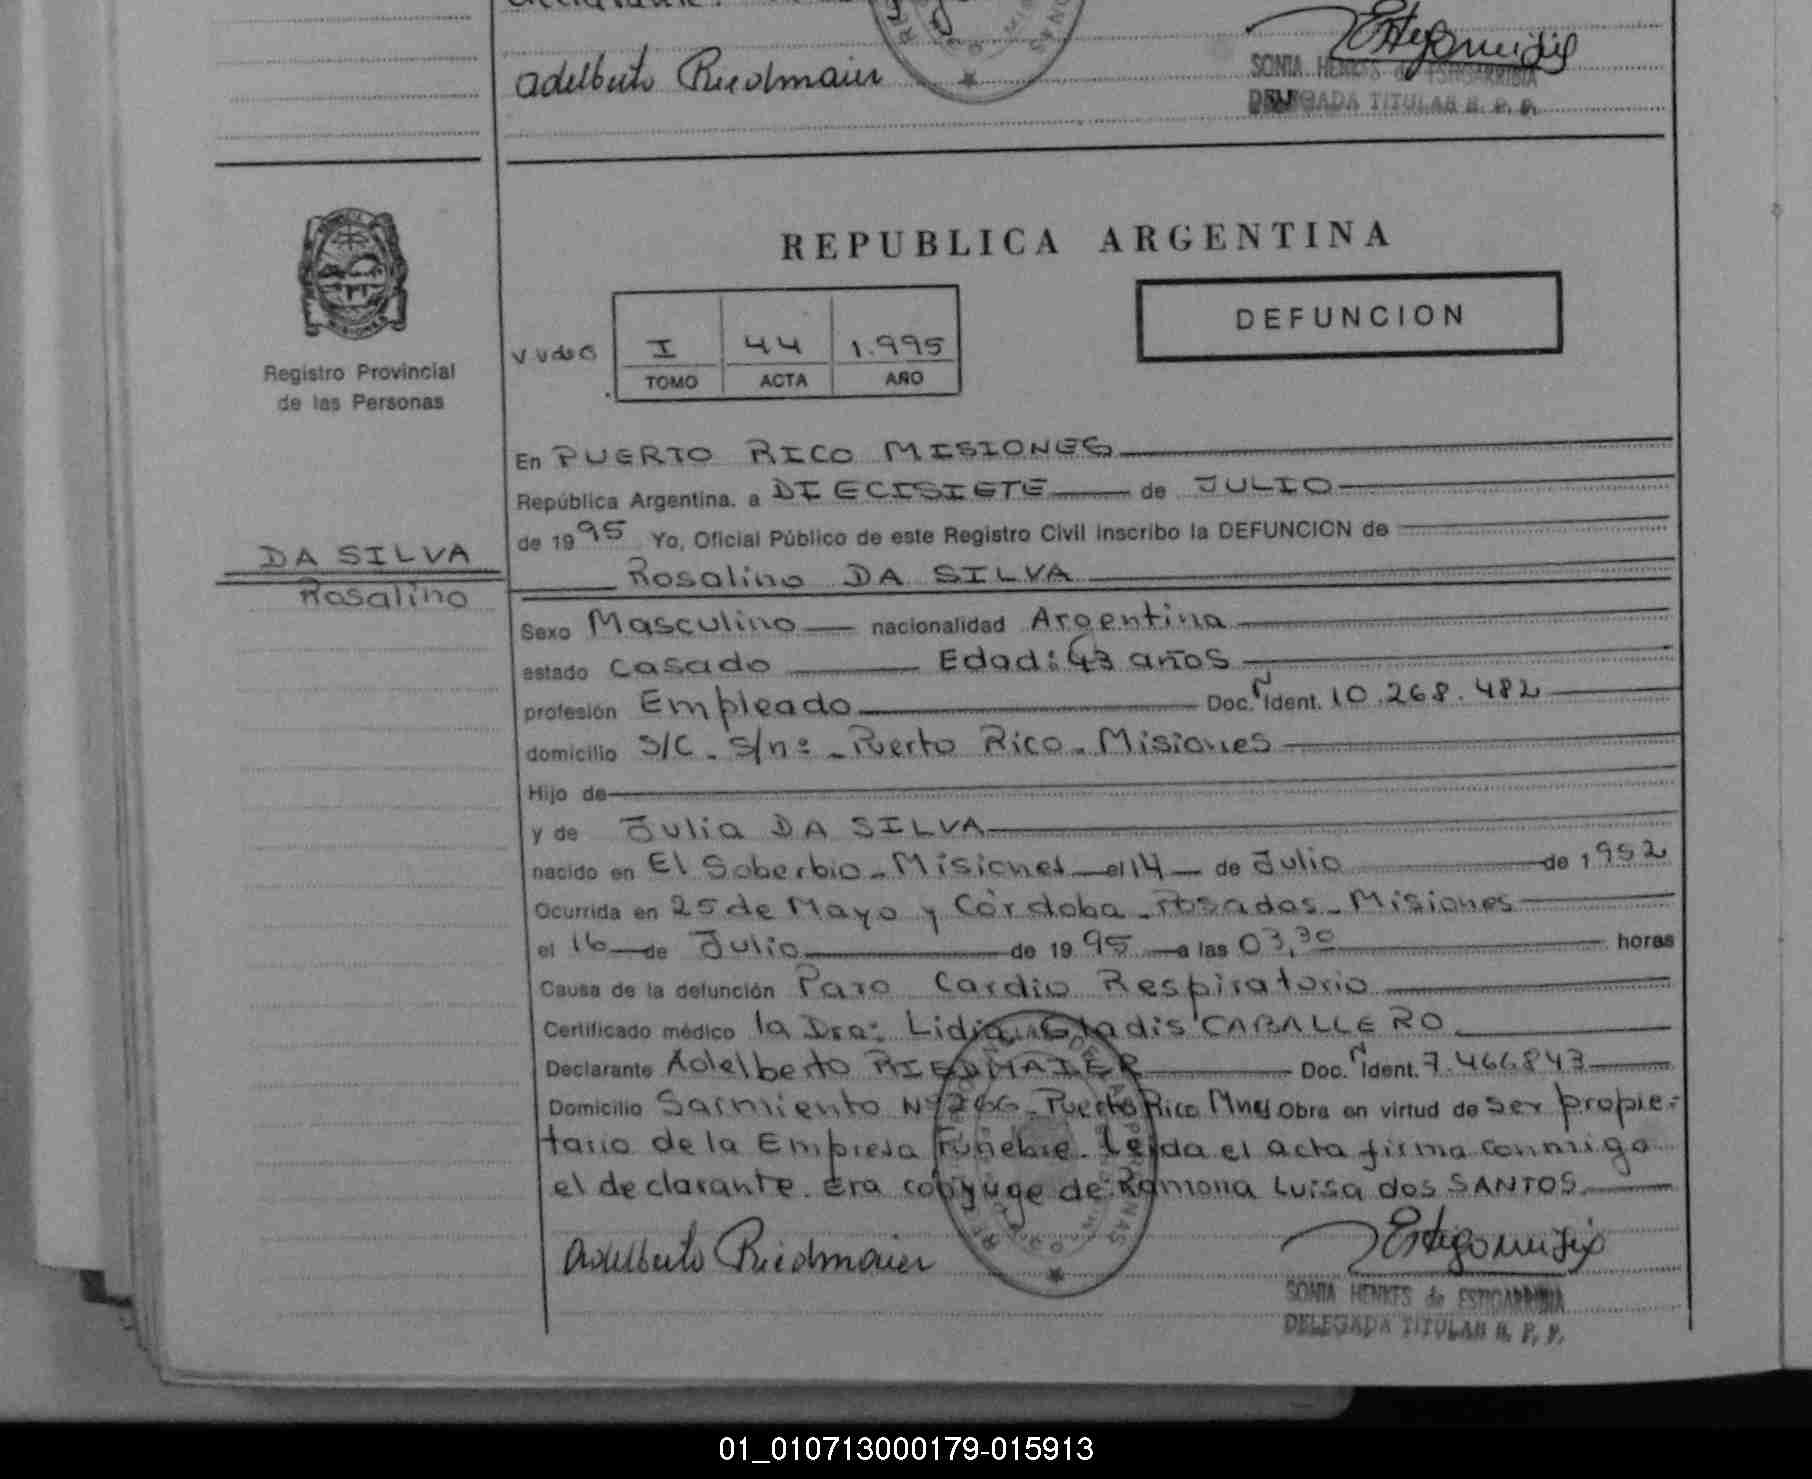 Adelberto Riedmaier
SONIA HENKES de ESTIGARRIBIA
DELEGADA TITULAR R. P. P.
REPUBLICA ARGENTINA
DEFUNCION
I 44 1.995
TOMO ACTA AÑO
Registro Provincial
de las Personas
En PUERTO RICO MISIONES
República Argentina, a DIECISIETE de JULIO
de 1995 Yo, Oficial Público de este Registro Civil inscribo la DEFUNCION de
DA SILVA
Rosalino
Rosalino DA SILVA
Sexo Masculino nacionalidad Argentina
estado casado Edad: 43 años
profesión Empleado Doc. N Ident. 10.268.482
domicilio S/C - S/nº - Puerto Rico - Misiones
Hijo de
y de Julia DA SILVA
nacido en El Soberbio - Misiones el 14 de Julio de 1952
Ocurrida en 25 de Mayo y Córdoba - Posadas - Misiones
el 16 de Julio de 1995 a las 03,30 horas
Causa de la defunción Paro Cardio Respiratorio
Certificado médico la Dra: Lidia Gladis CABALLERO
Declarante Adelberto RIEDMAIER Doc. N Ident. 7.466.843
Domicilio Sarmiento Nº 266 - Puerto Rico Mnes Obra en virtud de ser propie-
tario de la Empresa Fúnebre. Leída el acta firma conmigo
el declarante. Era cónyuge de: Ramona Luisa dos SANTOS
Adelberto Riedmaier
SONIA HENKES de ESTIGARRIBIA
DELEGADA TITULAR R. P. P.
01_010713000179-015913